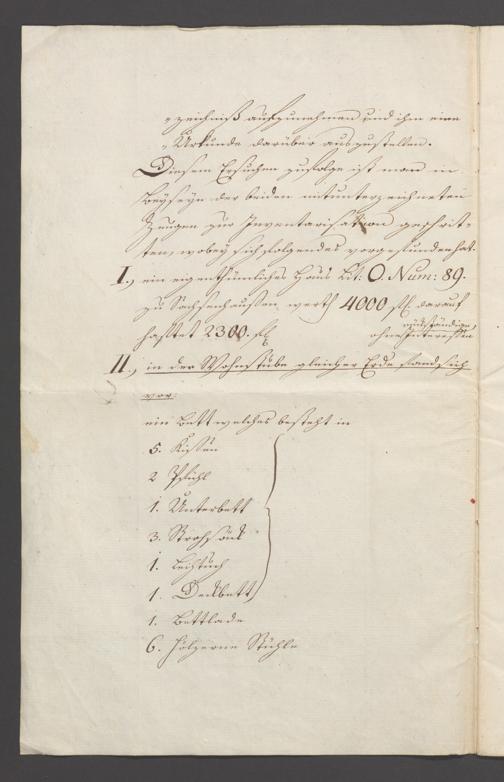 "zeichniß aufzunehmen und ihm eine
"Urkunde darüber auszustellen.
Diesem Ersuchen zufolge ist man in
Beyseyn der beiden mitunterzeichneten
Zeugen zur Inventarisation geschrit-
ten, wobey sich folgendes vorgefunden hat.
I., ein eigenthümliches Haus Lit: O. Num: 89.
zu Sachsenhaußen werth 4000 fl. darauf
haftet 2300. fl.
ohne Interessen
II., in der Wohnstube gleicher Erde fand sich
vor:
ein Bett welches besteht in
5. Kissen
2 Pfühl
1. Unterbett
3. Strohsäck
1. Leihtuch
1. Deckbett
1. Bettlade
6. hölzerne Stühle